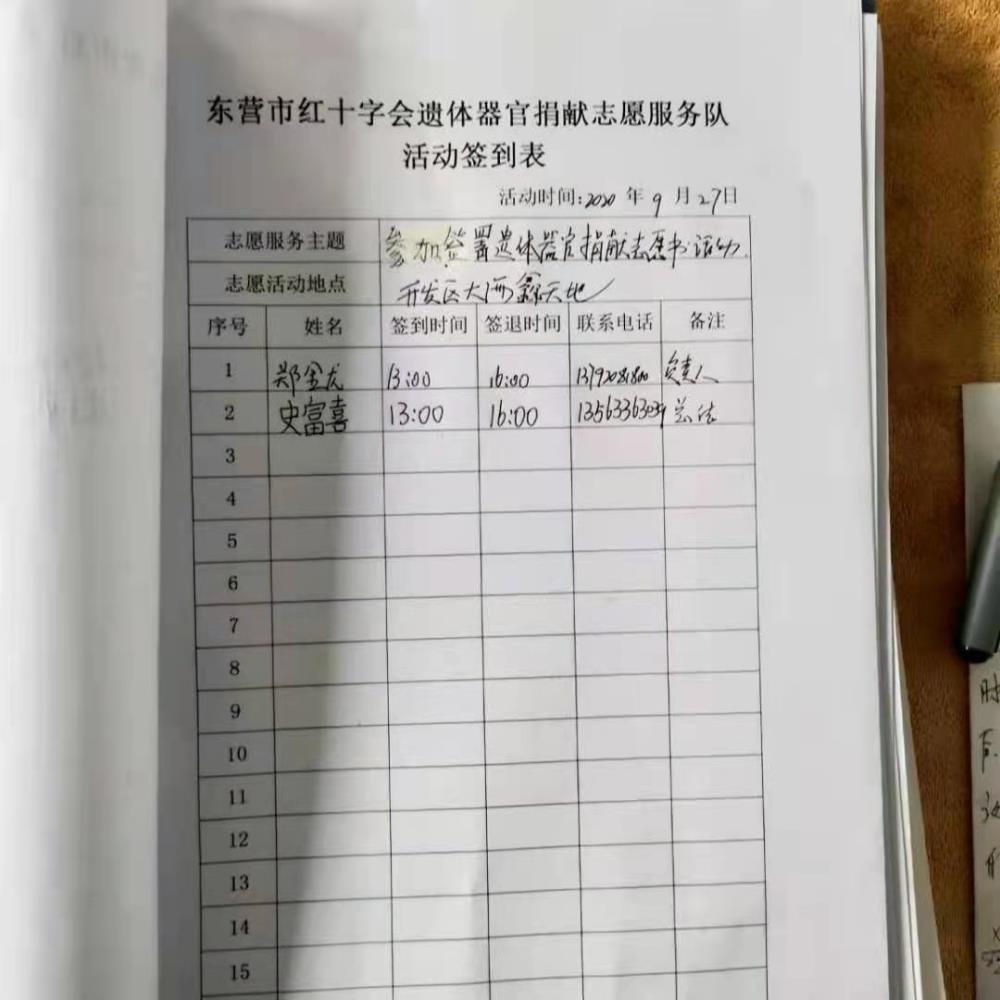 东营市红十字会遗体器官捐献志愿服务队
活动签到表
活动时间:2020 年 9 月 27日
志愿服务主题 参加签署遗体器官捐献志愿书活动.
志愿活动地点 开发区大西鑫天地
序号 姓名 签到时间 签退时间 联系电话 备注
1 郑金龙 13:00 16:00 负责人
2 史富喜 13:00 16:00
3
4
5
6
7
8
9
10
11
12
13
14
15